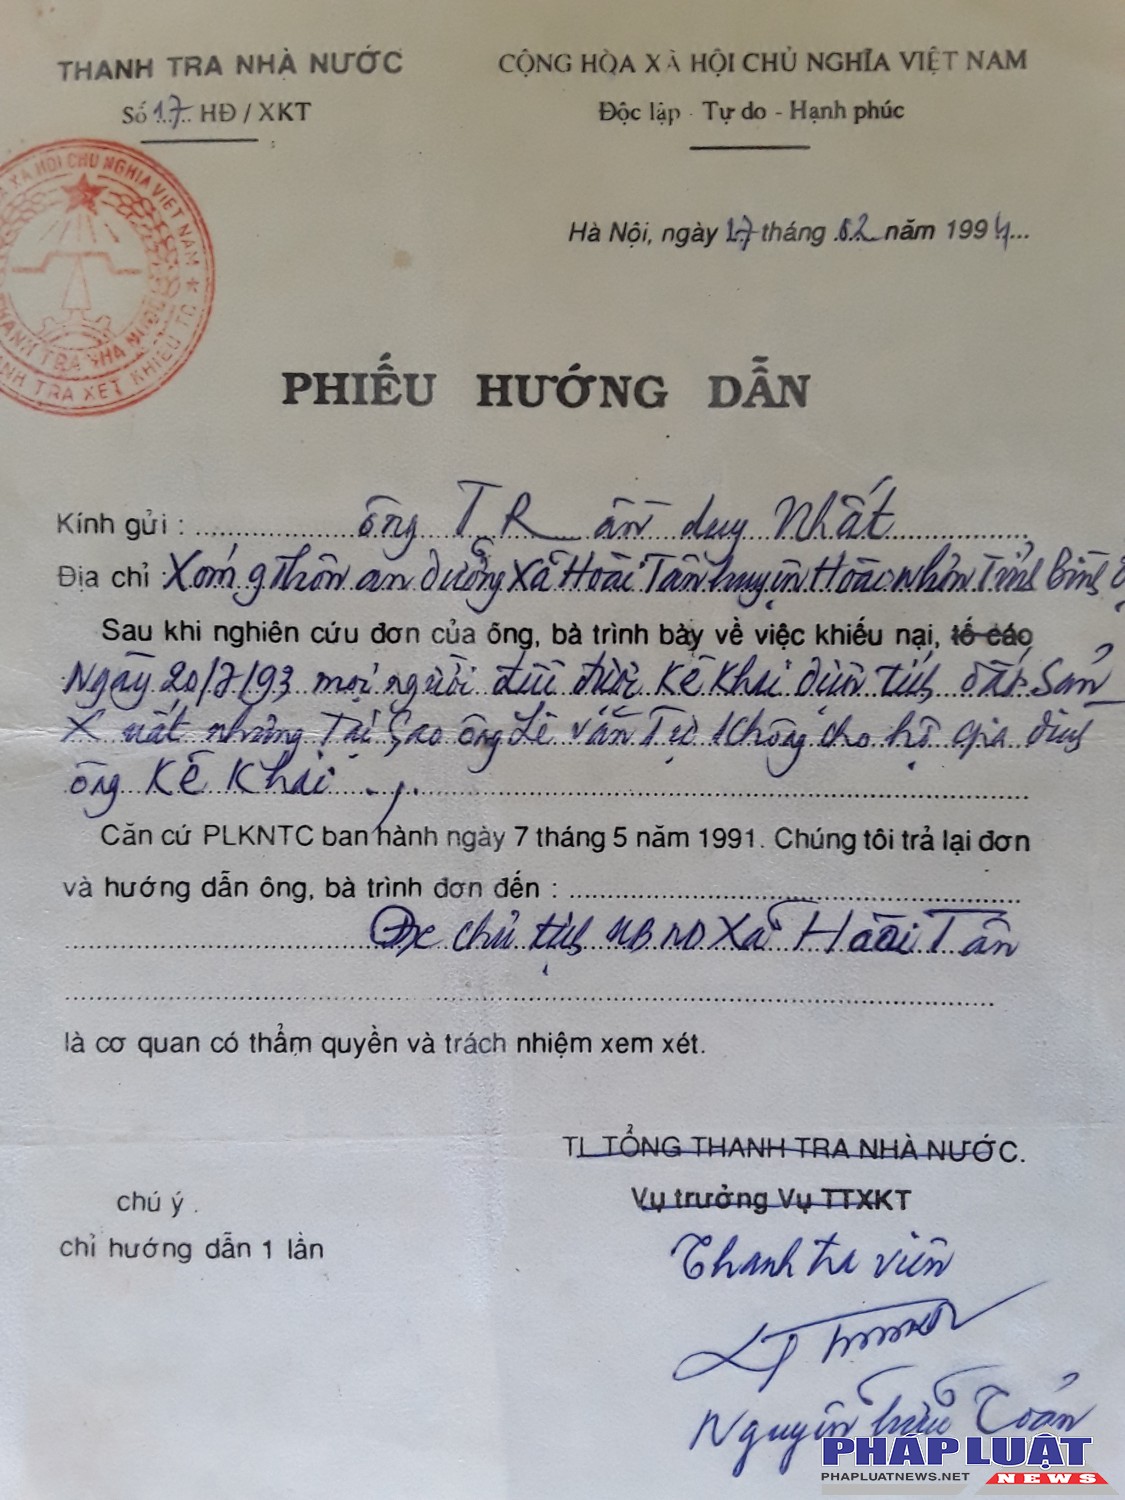 THANH TRA NHÀ NƯỚC
Số 17 HĐ / XKT
CỘNG HÒA XÃ HỘI CHỦ NGHĨA VIỆT NAM
Độc lập - Tự do - Hạnh phúc
Hà Nội, ngày 17 tháng 02 năm 1994
XÃ HỘI CHỦ NGHĨA VIỆT NAM
THANH TRA NHÀ NƯỚC
THANH TRA XÉT KHIẾU TỐ
PHIẾU HƯỚNG DẪN
Kính gửi : ông TRần duy Nhất
Địa chỉ : Xóm 9 thôn an dưỡng Xã Hoài Tân huyện Hoài nhơn Tỉnh Bình
Sau khi nghiên cứu đơn của ông, bà trình bày về việc khiếu nại, tố cáo
Ngày 20/7/93 mọi người đều được kê khai diện tích đất Sản
Xuất nhưng Tại Sao ông Lê văn Tự không cho hộ gia đình
ông Kê Khai
Căn cứ PLKNTC ban hành ngày 7 tháng 5 năm 1991. Chúng tôi trả lại đơn
và hướng dẫn ông, bà trình đơn đến :
Đ/c chủ tịch UBND Xã Hoài Tân
là cơ quan có thẩm quyền và trách nhiệm xem xét.
TL TỔNG THANH TRA NHÀ NƯỚC.
Vụ trưởng Vụ TTXKT
chú ý .
chỉ hướng dẫn 1 lần
Thanh tra viên
Nguyễn hữu Toản
PHÁP LUẬT
PHAPLUATNEWS.NET
NEWS